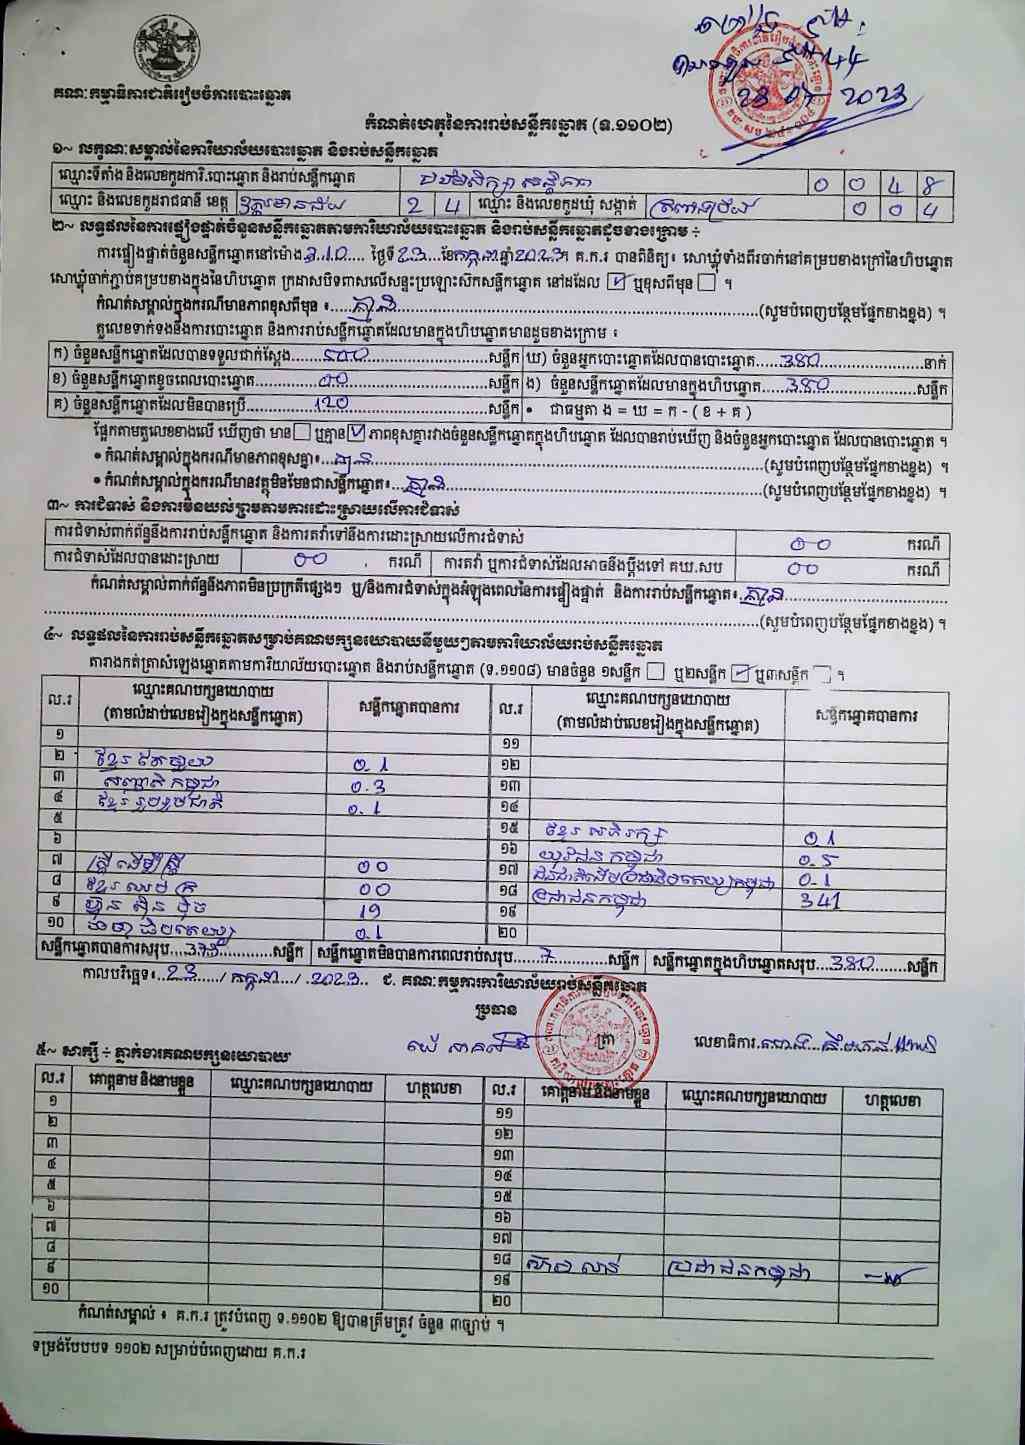 គណៈកម្មាធិការជាតិរៀបចំការបោះឆ្នោត
28 07 2023
កំណត់ហេតុនៃការរាប់សន្លឹកឆ្នោត (ទ.១១០២)
១~ លក្ខណៈសម្គាល់នៃការិយាល័យបោះឆ្នោត និងរាប់សន្លឹកឆ្នោត
ឈ្មោះទីតាំង និងលេខកូដការិ.បោះឆ្នោត និងរាប់សន្លឹកឆ្នោត 0 0 4 8
ឈ្មោះ និងលេខកូដរាជធានី ខេត្ត ឧត្តរមានជ័យ 2 4 ឈ្មោះ និងលេខកូដឃុំ សង្កាត់ 0 0 4
២~ លទ្ធផលនៃការផ្ទៀងផ្ទាត់ចំនួនសន្លឹកឆ្នោតតាមការិយាល័យបោះឆ្នោត និងរាប់សន្លឹកឆ្នោតដូចខាងក្រោម ÷
ការផ្ទៀងផ្ទាត់ចំនួនសន្លឹកឆ្នោតនៅម៉ោង 3.10 ថ្ងៃទី 23 ខែកក្កដា ឆ្នាំ 2023។ គ.ក.រ បានពិនិត្យ៖ សោឃ្លុំទាំងពីរចាក់នៅគម្របខាងក្រៅនៃហិបឆ្នោត
សោឃ្លុំចាក់ភ្ជាប់គម្របខាងក្នុងនៃហិបឆ្នោត ក្រដាសបិទពាសលើសន្ទះប្រឡោះស៊កសន្លឹកឆ្នោត នៅដដែល ☑ ឬខុសពីមុន ☐ ។
កំណត់សម្គាល់ក្នុងករណីមានភាពខុសពីមុន ៖ គ្មាន (សូមបំពេញបន្ថែមផ្នែកខាងខ្នង) ។
តួលេខទាក់ទងនឹងការបោះឆ្នោត និងការរាប់សន្លឹកឆ្នោតដែលមានក្នុងហិបឆ្នោតមានដូចខាងក្រោម ៖
ក) ចំនួនសន្លឹកឆ្នោតដែលបានទទួលជាក់ស្តែង 500 សន្លឹក ឃ) ចំនួនអ្នកបោះឆ្នោតដែលបានបោះឆ្នោត 380 នាក់
ខ) ចំនួនសន្លឹកឆ្នោតខូចពេលបោះឆ្នោត 00 សន្លឹក ង) ចំនួនសន្លឹកឆ្នោតដែលមានក្នុងហិបឆ្នោត 380 សន្លឹក
គ) ចំនួនសន្លឹកឆ្នោតដែលមិនបានប្រើ 120 សន្លឹក • ជាធម្មតា ង = ឃ = ក - ( ខ + គ )
ផ្អែកតាមតួលេខខាងលើ ឃើញថា មាន ☐ ឬគ្មាន ☑ ភាពខុសគ្នារវាងចំនួនសន្លឹកឆ្នោតក្នុងហិបឆ្នោត ដែលបានរាប់ឃើញ និងចំនួនអ្នកបោះឆ្នោត ដែលបានបោះឆ្នោត ។
• កំណត់សម្គាល់ក្នុងករណីមានភាពខុសគ្នា៖ គ្មាន (សូមបំពេញបន្ថែមផ្នែកខាងខ្នង) ។
• កំណត់សម្គាល់ក្នុងករណីមានវត្ថុមិនមែនជាសន្លឹកឆ្នោត៖ គ្មាន (សូមបំពេញបន្ថែមផ្នែកខាងខ្នង) ។
៣~ ការជំទាស់ និងការមិនយល់ព្រមតាមការដោះស្រាយលើការជំទាស់
ការជំទាស់ពាក់ព័ន្ធនឹងការរាប់សន្លឹកឆ្នោត និងការតវ៉ាទៅនឹងការដោះស្រាយលើការជំទាស់ 00 ករណី
ការជំទាស់ដែលបានដោះស្រាយ 00 ករណី ការតវ៉ា ឬការជំទាស់ដែលអាចនឹងប្តឹងទៅ គឃ.សប 00 ករណី
កំណត់សម្គាល់ពាក់ព័ន្ធនឹងភាពមិនប្រក្រតីផ្សេងៗ ឬ/និងការជំទាស់ក្នុងអំឡុងពេលនៃការផ្ទៀងផ្ទាត់ និងការរាប់សន្លឹកឆ្នោត៖ គ្មាន
(សូមបំពេញបន្ថែមផ្នែកខាងខ្នង) ។
៤~ លទ្ធផលនៃការរាប់សន្លឹកឆ្នោតសម្រាប់គណបក្សនយោបាយនីមួយៗតាមការិយាល័យរាប់សន្លឹកឆ្នោត
តារាងកត់ត្រាសំឡេងឆ្នោតតាមការិយាល័យបោះឆ្នោត និងរាប់សន្លឹកឆ្នោត (ទ.១១០៨) មានចំនួន ១សន្លឹក ☐ ឬ២សន្លឹក ☑ ឬ៣សន្លឹក ☐ ។
ល.រ ឈ្មោះគណបក្សនយោបាយ (តាមលំដាប់លេខរៀងក្នុងសន្លឹកឆ្នោត) សន្លឹកឆ្នោតបានការ ល.រ ឈ្មោះគណបក្សនយោបាយ (តាមលំដាប់លេខរៀងក្នុងសន្លឹកឆ្នោត) សន្លឹកឆ្នោតបានការ
១ ១១
២ ខ្មែរ 0.1 ១២
៣ សញ្ជាតិកម្ពុជា 0.3 ១៣
៤ ខ្មែររួបរួមជាតិ 0.1 ១៤
៥ ១៥ ខ្មែរអភិរក្ស 01
៦ ១៦ យុវជនកម្ពុជា 0.5
៧ ស្ត្រីដើម្បីស្ត្រី 00 ១៧ ជនជាតិដើមប្រជាធិបតេយ្យកម្ពុជា 0.1
៨ ខ្មែរឈប់ក្រ 00 ១៨ ប្រជាជនកម្ពុជា 341
៩ ហ៊្វុនស៊ិនប៉ិច 19 ១៩
១០ 0.1 ២០
សន្លឹកឆ្នោតបានការសរុប 373 សន្លឹក សន្លឹកឆ្នោតមិនបានការពេលរាប់សរុប 7 សន្លឹក សន្លឹកឆ្នោតក្នុងហិបឆ្នោតសរុប 380 សន្លឹក
កាលបរិច្ឆេទ៖ 23 / កក្កដា / 2023 ជ. គណៈកម្មការការិយាល័យរាប់សន្លឹកឆ្នោត
ប្រធាន
ត្រា លេខាធិការ
៥~ សាក្សី ÷ ភ្នាក់ងារគណបក្សនយោបាយ
ល.រ គោត្តនាម និងនាមខ្លួន ឈ្មោះគណបក្សនយោបាយ ហត្ថលេខា ល.រ គោត្តនាម និងនាមខ្លួន ឈ្មោះគណបក្សនយោបាយ ហត្ថលេខា
១ ១១
២ ១២
៣ ១៣
៤ ១៤
៥ ១៥
៦ ១៦
៧ ១៧
៨ ១៨ ប្រជាជនកម្ពុជា
៩ ១៩
១០ ២០
កំណត់សម្គាល់ ៖ គ.ក.រ ត្រូវបំពេញ ទ.១១០២ ឱ្យបានត្រឹមត្រូវ ចំនួន ៣ច្បាប់ ។
ទម្រង់បែបបទ ១១០២ សម្រាប់បំពេញដោយ គ.ក.រ